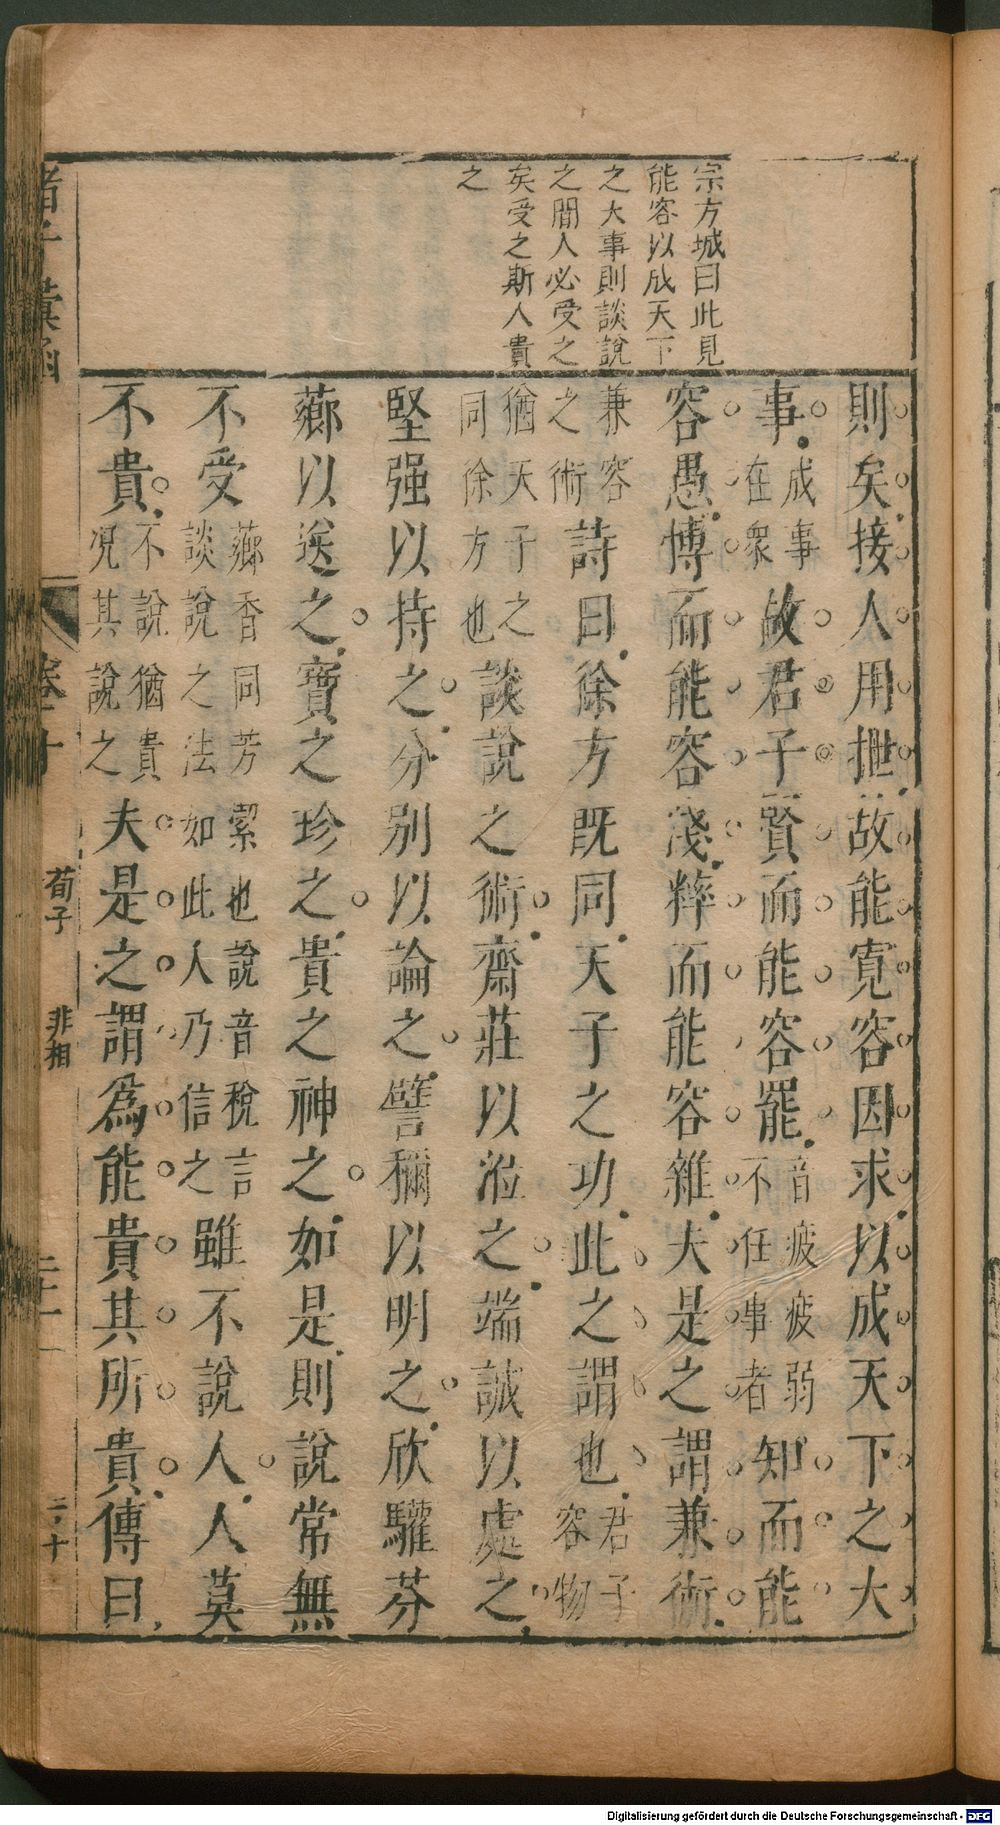 宗方城曰此見
能容以成天下
之大事則談說
之間人必受之
矣受之斯人貴
之
則矣接人用抴故能寬容因求以成天下之大
事成事在衆故君子賢而能容罷音疲疲弱不任事者知而能
容愚博而能容淺粹而能容雜夫是之謂兼術
兼容之術詩曰徐方既同天子之功此之謂也君子容物
猶天子之同徐方也談說之術齋莊以涖之端誠以處之
堅强以持之分别以論之譬稱以明之欣驩芬
薌以送之寶之珍之貴之神之如是則說常無
不受薌香同芳潔也說音稅言談說之法如此人乃信之雖不說人人莫
不貴不說猶貴况其說之夫是之謂爲能貴其所貴傳曰
諸子彙函
卷十
荀子
非相
二十一
二十
Digitalisierung gefördert durch die Deutsche Forschungsgemeinschaft - DFG